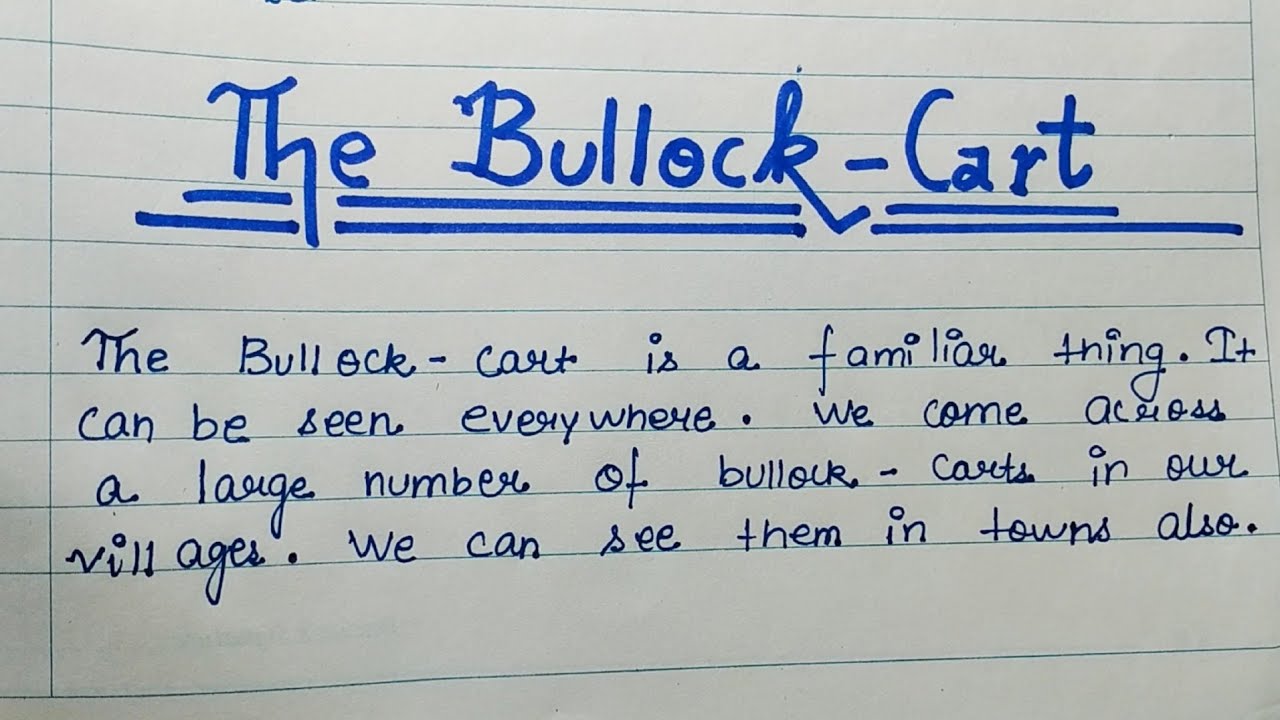 The Bullock-Cart
The Bullock-cart is a familiar thing. It
can be seen everywhere. We come across
a large number of bullock-carts in our
villages. We can see them in towns also.